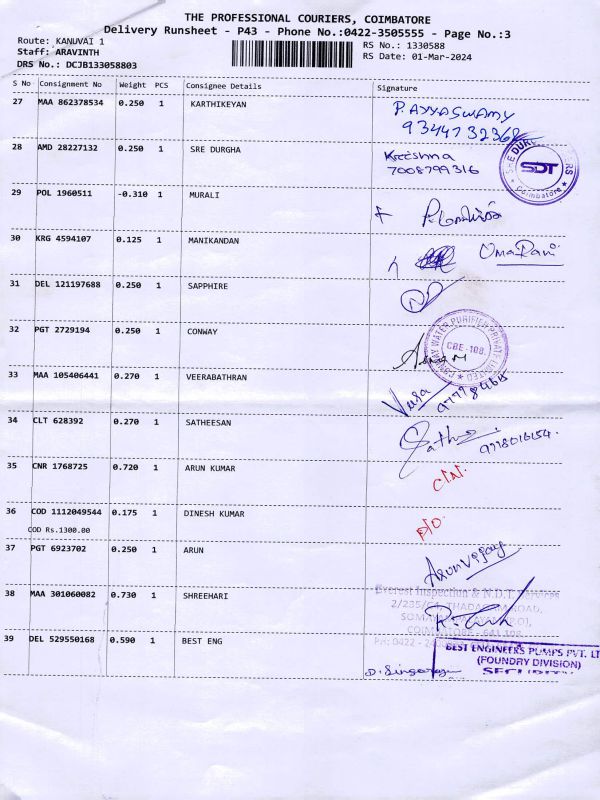 THE PROFESSIONAL COURIERS, COIMBATORE
Delivery Runsheet - P43 - Phone No.:0422-3505555 - Page No.:3
Route: KANUVAI 1
Staff: ARAVINTH
DRS No.: DCJB133058803
RS No.: 1330588
RS Date: 01-Mar-2024
S No Consignment No Weight PCS Consignee Details Signature
27 MAA 862378534 0.250 1 KARTHIKEYAN P. AYYASWAMY
9344732368
28 AMD 28227132 0.250 1 SRE DURGHA Kreeshma
7008799316
SDT
Coimbatore
29 POL 1960511 -0.310 1 MURALI
30 KRG 4594107 0.125 1 MANIKANDAN UmaRani
31 DEL 121197688 0.250 1 SAPPHIRE
32 PGT 2729194 0.250 1 CONWAY
CONWAY WATER PURIFICH PRIVATE LIMITED
CBE-108.
33 MAA 105406441 0.270 1 VEERABATHRAN
34 CLT 628392 0.270 1 SATHEESAN Sathee
35 CNR 1768725 0.720 1 ARUN KUMAR
36 COD 1112049544 0.175 1 DINESH KUMAR
COD Rs.1300.00
37 PGT 6923702 0.250 1 ARUN Arunvijay
38 MAA 301060082 0.730 1 SHREEHARI
Everest Inspection & N.D.T. Services
THADAGAM ROAD,
39 DEL 529550168 0.590 1 BEST ENG
BEST ENGINEERS PUMPS PVT. LT
(FOUNDRY DIVISION)
SECURITY